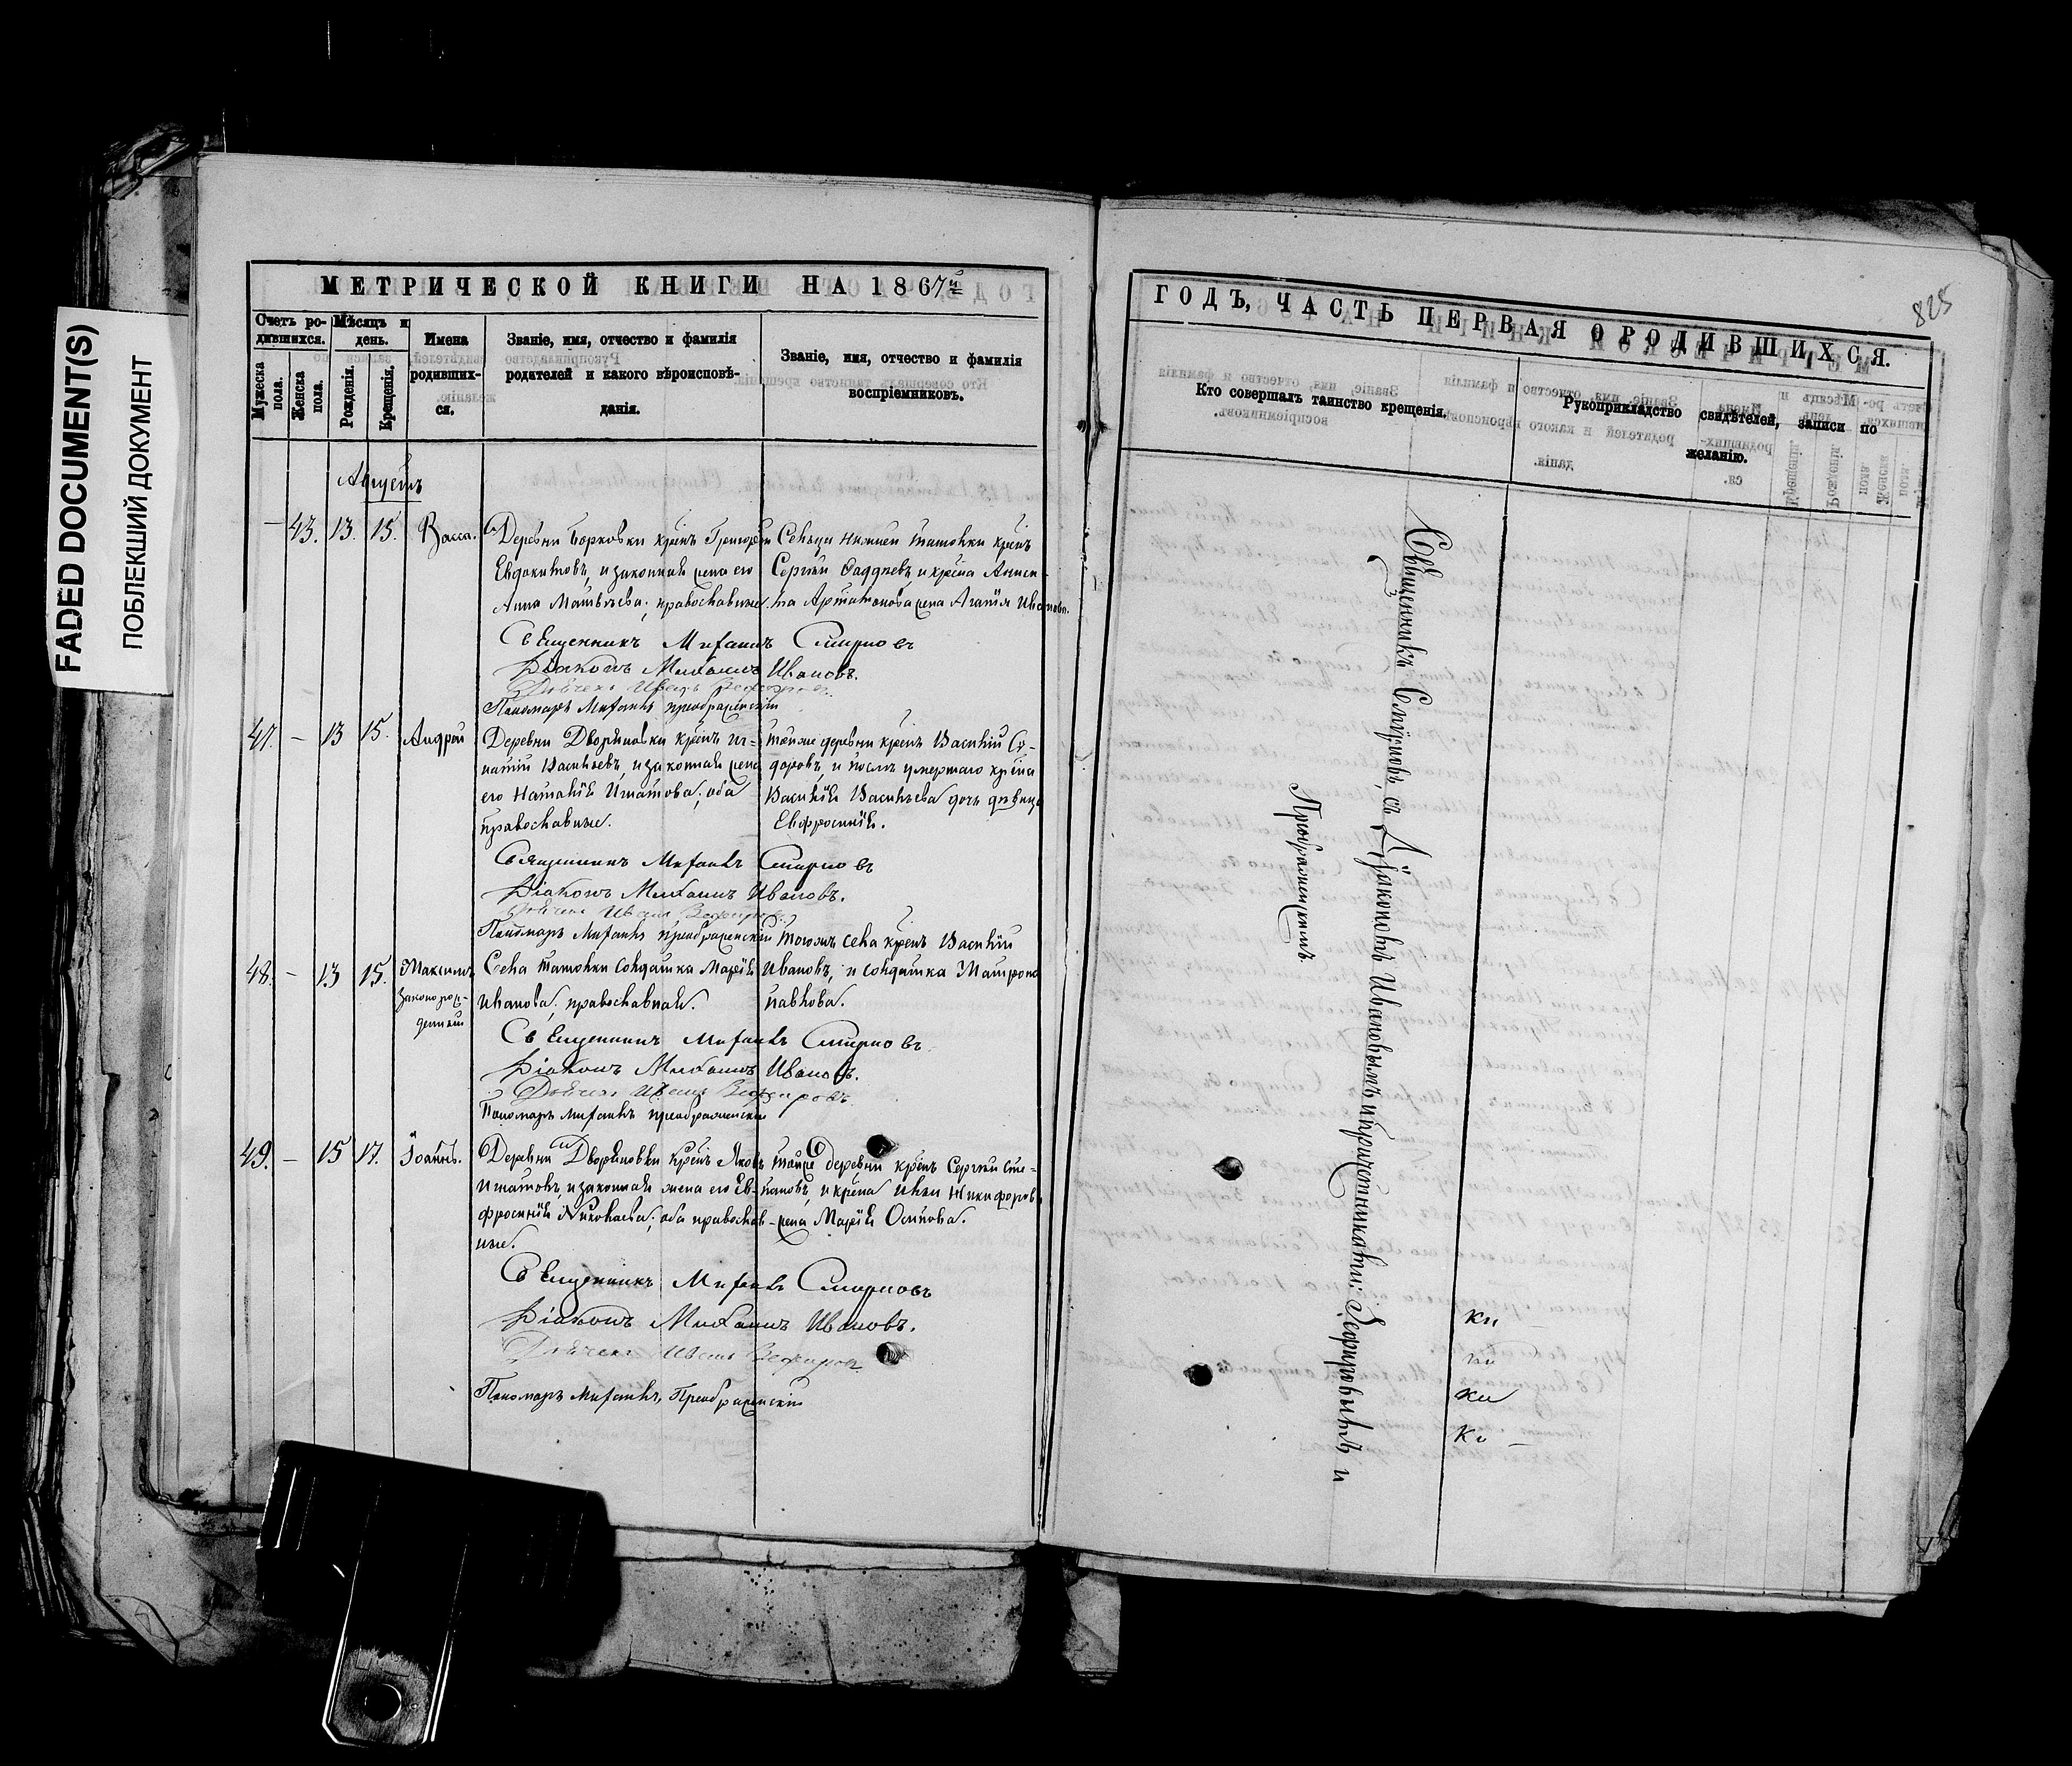 FADED DOCUMENT(S)
ПОБЛЕКШИЙ ДОКУМЕНТ
МЕТРИЧЕСКОЙ КНИГИ НА 1867й
Счетъ ро-
дившихся.
Мѣсяцъ и
день.
Имена
родивших-
ся.
Званіе, имя, отчество и фамилія
родителей и какого вѣроисповѣ-
данія.
Званіе, имя, отчество и фамилія
воспріемниковъ.
Мужеска
пола.
Женска
пола.
Рожденія.
Крещенія.
Августъ
— 43. 13. 15. Васса.
Деревни Борковки крѣнъ Григорій
Евдокимовъ, и законная жена его
Анна Матвѣева; православные.
Сельца Нижней Татовки крѣнъ
Сергѣй Фаддѣевъ, и крѣна
Артамонова жена Агаѳія Иванова.
Священникъ Михаилъ Смирновъ
Діаконъ Михаилъ Ивановъ.
Дьячекъ Иванъ Зефировъ
Пономарь Михаилъ Преображенскій
47. — 13 15. Андрей
Деревни Дворяновки крѣнъ Иг-
натій Васильевъ, и законная жена
его Наталія Игнатова; оба
православные.
тойже деревни крѣнъ Василій Си-
доровъ, и послѣ умершаго крѣна
Василія Васильева дочь дѣвица
Евфросинія.
Священникъ Михаилъ Смирновъ
Діаконъ Михаилъ Ивановъ.
Дьячекъ Иванъ Зефировъ
Пономарь Михаилъ Преображенскій
48. — 13 15. Максимъ
законорож-
денный
Села Татовки солдатка Марія
Иванова; православная.
тогожъ села крѣнъ Василій
Ивановъ, и солдатка Матрона
Павлова.
Священникъ Михаилъ Смирновъ
Діаконъ Михаилъ Ивановъ.
Дьячекъ Иванъ Зефировъ
Пономарь Михаилъ Преображенскій
49. — 15 17. Іоаннъ.
Деревни Дворяновки крѣнъ Яковъ
Игнатовъ, и законная жена его Ев-
фросинія Николаева; оба православ-
ные.
тойже деревни крѣнъ Сергѣй Сте-
пановъ, и крѣна Ильи Никифорова
жена Марія Осипова.
Священникъ Михаилъ Смирновъ
Діаконъ Михаилъ Ивановъ.
Дьячекъ Иванъ Зефировъ
Пономарь Михаилъ Преображенскій
825
ГОДЪ, ЧАСТЬ ПЕРВАЯ О РОДИВШИХСЯ.
Кто совершалъ таинство крещенія.
Рукоприкладство свидѣтелей, записи по
желанію.
Священникъ Смирновъ, съ Діакономъ Ивановымъ и причетниками: Зефировымъ и
Преображенскимъ